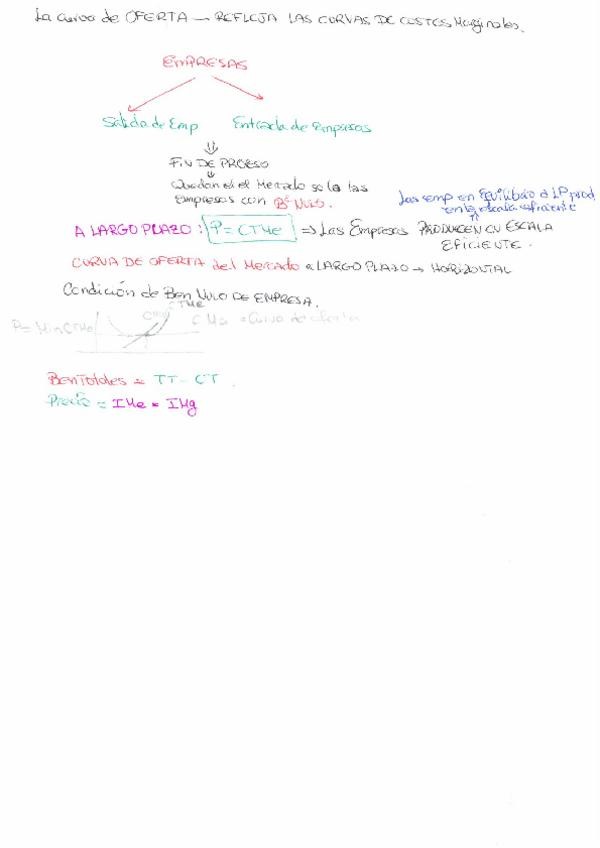 La curva de OFERTA → REFLEJA LAS CURVAS DE COSTES Marginales.
EMPRESAS
Salida de Emp Entrada de empresas
FIN DE PROESO
Quedan en el Mercado solo las
empresas con Bº NULO.
Las emp en Equilibrio a LP prod
en la escala eficiente
A LARGO PLAZO: P = CTMe ⇒ Las Empresas PRODUCEN EN ESCALA
EFICIENTE.
CURVA DE OFERTA del Mercado a LARGO PLAZO → HORIZONTAL
Condición de Ben NULO DE EMPRESA.
CTMe
P = Min CTMe CMg = Curva de oferta
BenTotales = TT - CT.
Precio = IMe = IMg